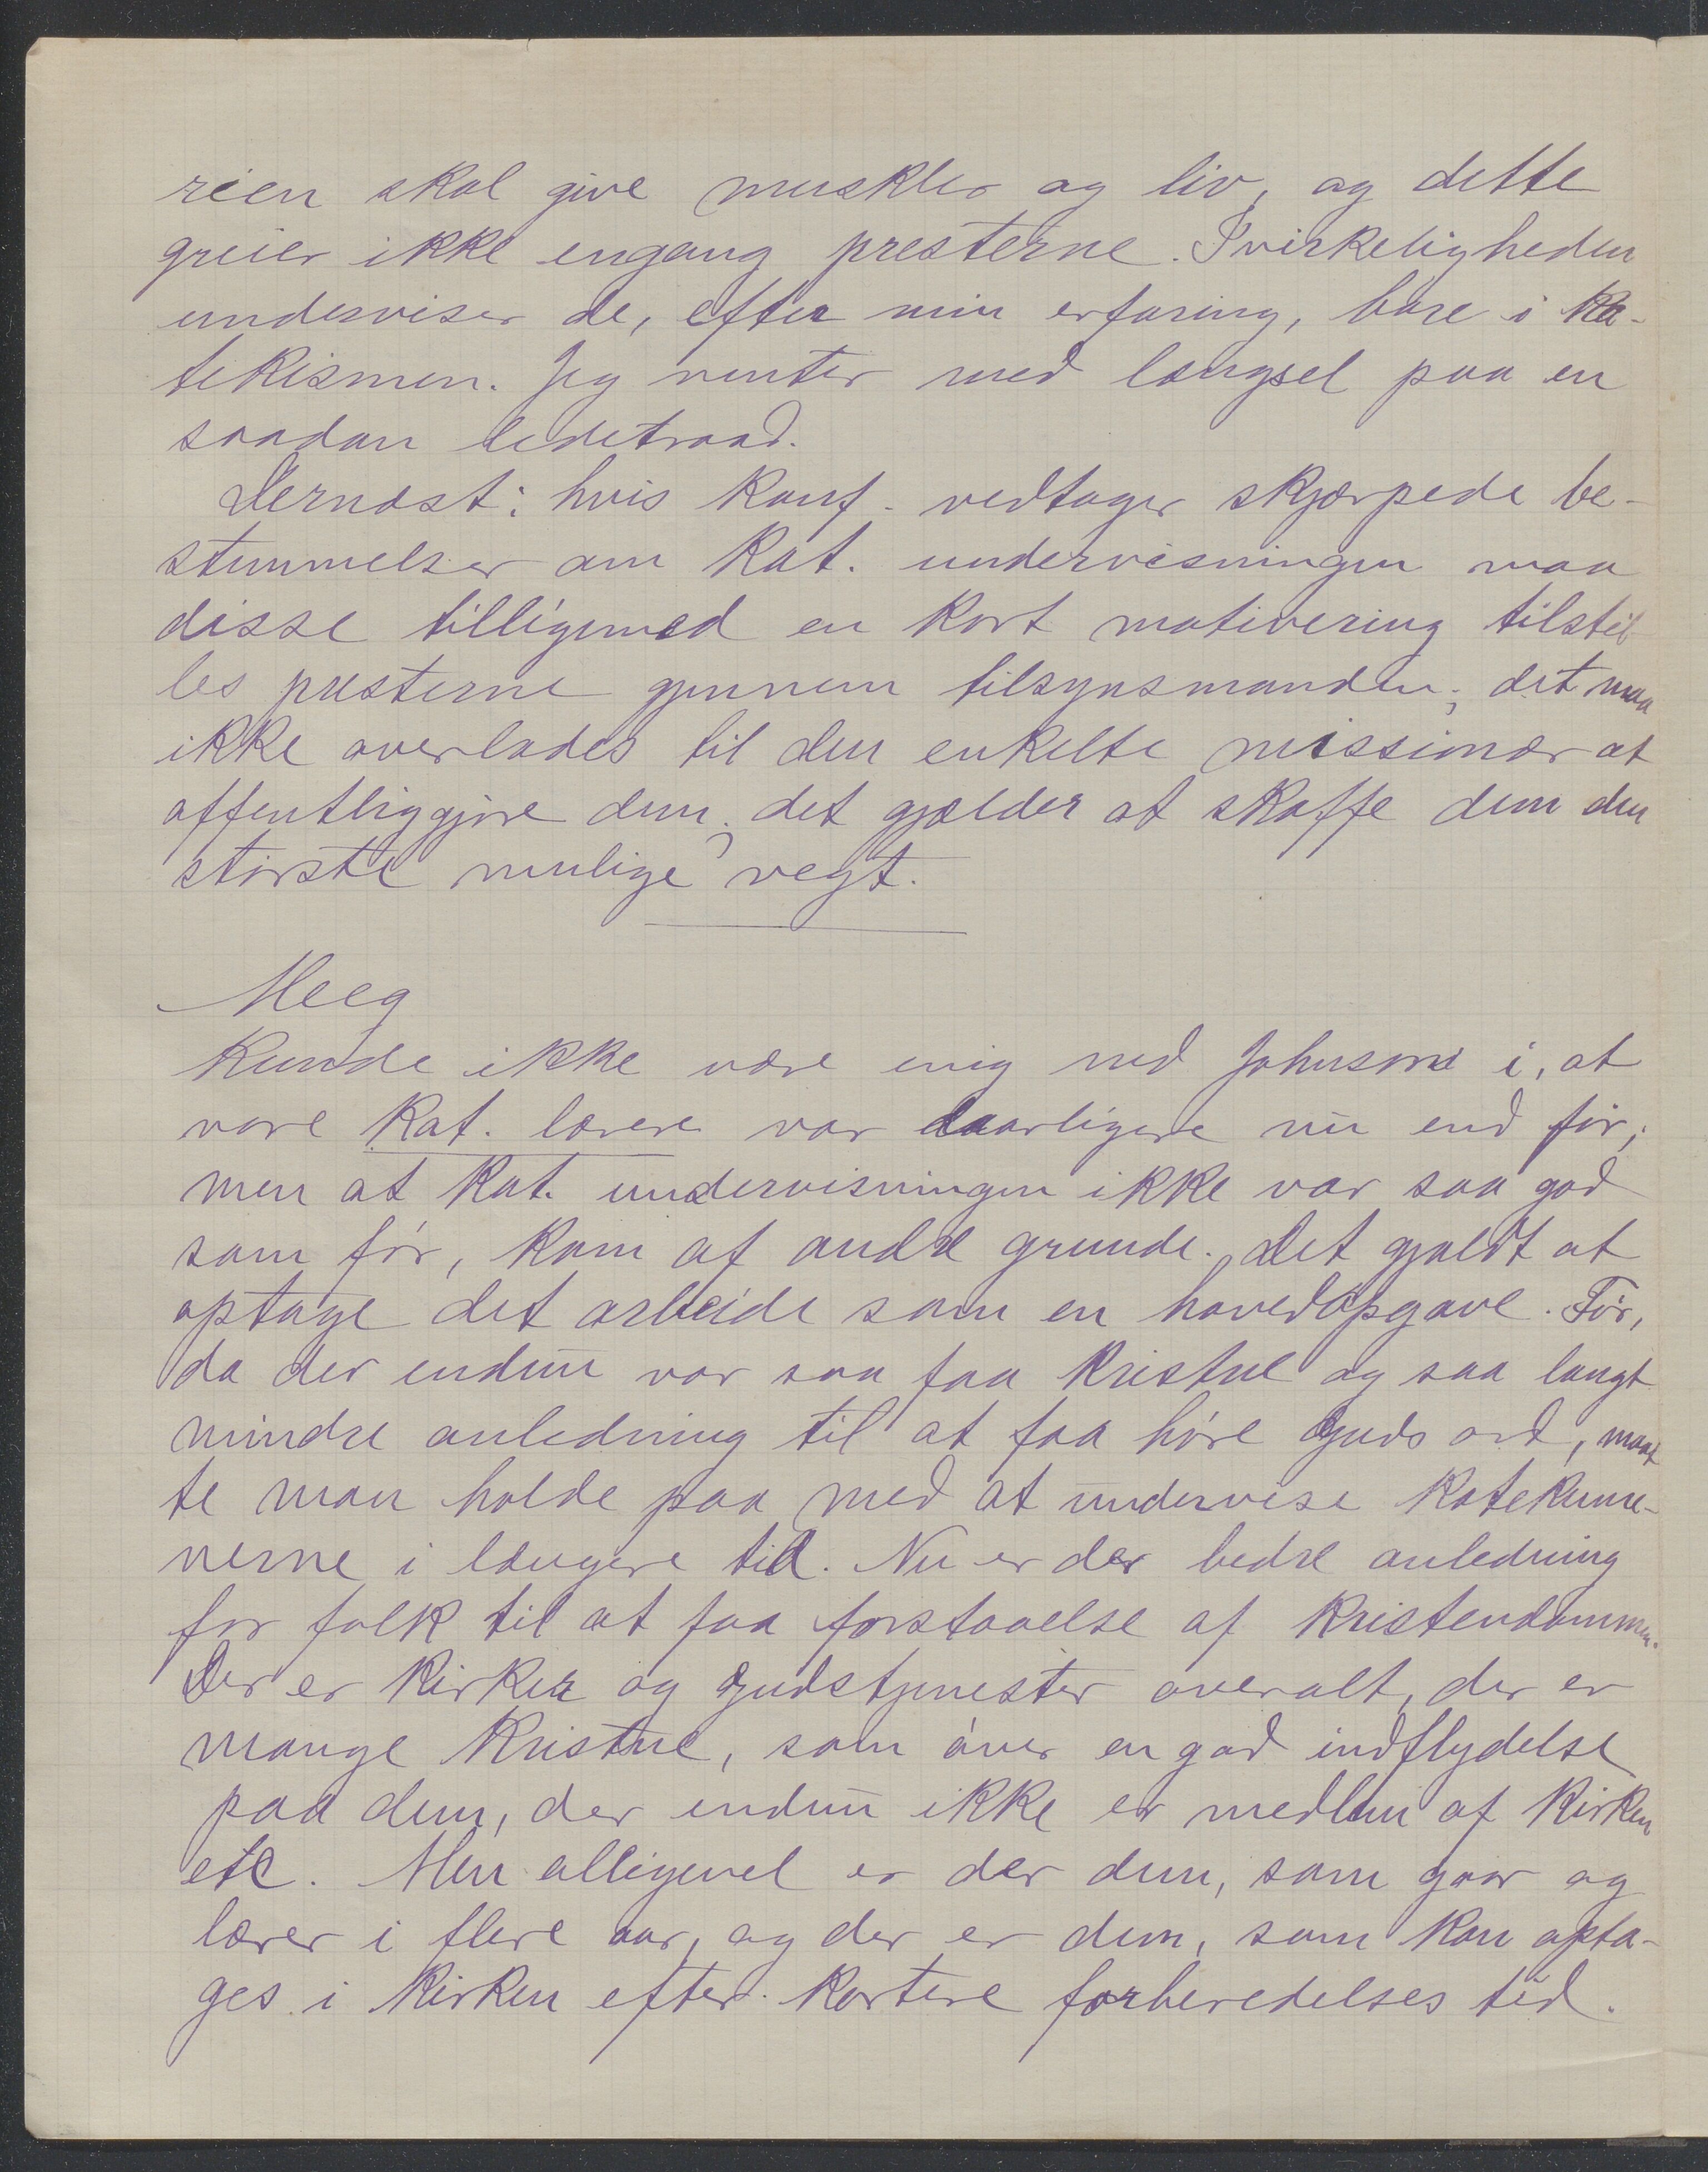 reen skal give muskler og liv, og dette
greier ikke engang presterne. I virkeligheden
underviser de, efter min erfaring, bare i ka-
tekismen. Jeg venter med længsel paa en
saadan ledetraad.
Dernæst: hvis konf. vedtager skjærpede be-
stemmelser om kat. undervisningen maa
disse tilligemed en kort motivering tilstil
les presterne gjennem tilsynsmanden; det maa
ikke overlades til den enkelte missionær at
offentliggjøre dem; det gjælder at skaffe dem den
største mulige vegt.
Meeg
Kunde ikke være enig med Johnson i, at
vore kat. lærere var daarligere nu end før;
men at kat. undervisningen ikke var saa god
som før, kom af andre grunde. Det gjaldt at
optage det arbeide som en hovedopgave. Før,
da der endnu var saa faa kristne og saa langt
mindre anledning til at faa høre Guds ord, maat
te man holde paa med at undervise katekume-
nerne i længere tid. Nu er der bedre anledning
for folk til at faa forstaaelse af kristendommen.
Der er kirker og gudstjenester overalt, der er
mange kristne, som øver en god indflydelse
paa dem, der endnu ikke er medlem af kirken
etc. Men alligevel er der dem, som gaar og
lærer i flere aar, og der er dem, som kan opta-
ges i kirken efter kortere forberedelses tid.